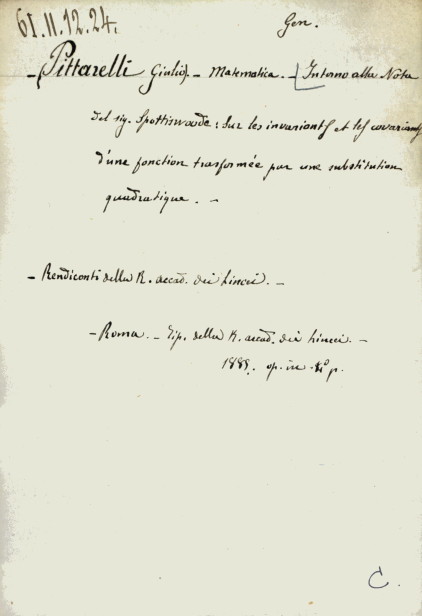 61.II.12.24.
Gen.
- Pittarelli (Giulio). - Matematica. - Intorno alla Nota
del sig. Spottiswoode: Sur les invariants et les covariants
d'une fonction trasformée par une substitution
quadratique. -
- Rendiconti della R. accad. dei Lincei. -
- Roma. - Tip. della R. accad. dei Lincei. -
1885. op. in 4º p.
C.